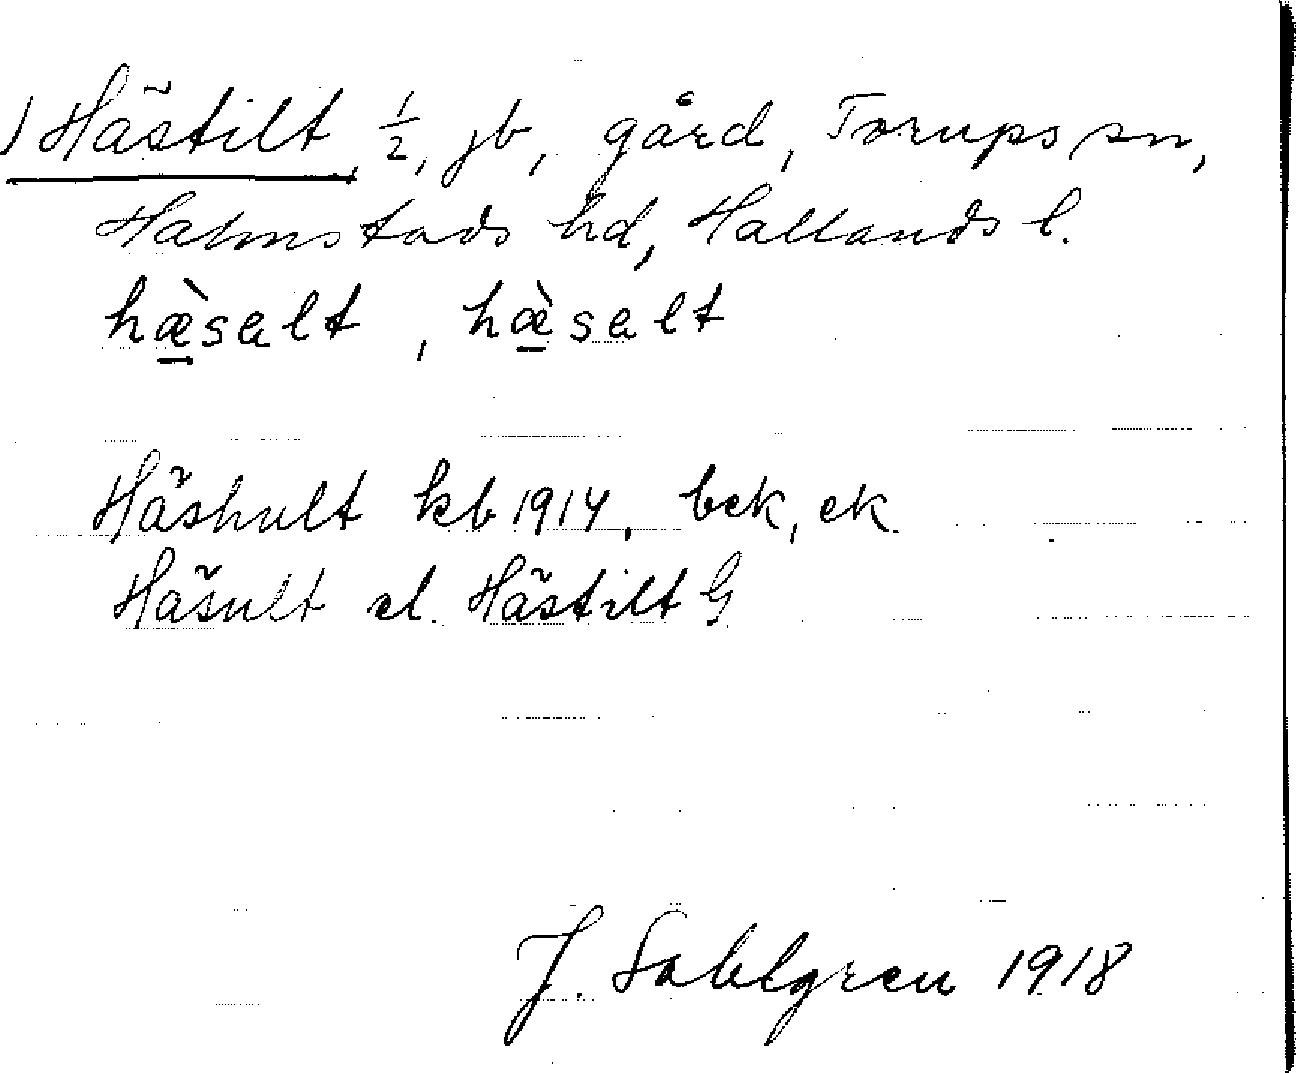 ) Hästilt, 1/2, jb, gård, Torups sn,
Halmstads hd, Hallands l.
hæ̲̀salt, hæ̲̀salt
Häshult kb 1914, bek, ek.
Häsult el. Hästilt G
J. Sahlgren 1918